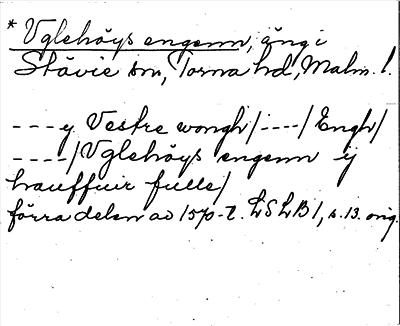 * Vglehöys engenn, äng i
Stävie sn, Torna hd, Malm. l.
---y Vestre wongh/ ----/ Engh/
----/ Vglehöys engenn ij
hauffuir fulle/
förra delen av 1570-t. LSLB 1, s. 13. orig.